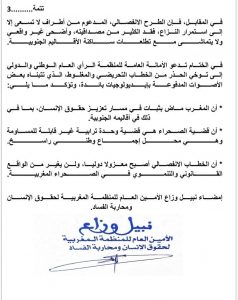 تتمة..........3
في المقابل، فإن الطرح الانفصالي، المدعوم من أطراف لا تسعى إلا
إلى استمرار النزاع، فقد الكثير من مصداقيته، وأضحى غير واقعي
ولا يتماشى مع تطلعات ساكنة الأقاليم الجنوبية.
في الختام تدعو الأمانة العامة للمنظمة الرأي العام الوطني والدولي
إلى توخي الحذر من الخطاب التحريضي والمغلوط، الذي تتبناه بعض
الأصوات المدفوعة بإيديولوجيات بائدة، وتؤكد مجددا على:
* أن المغرب ماض بثبات في مسار تعزيز حقوق الإنسان، بما في
ذلك في أقاليمه الجنوبية.
* أن قضية الصحراء هي قضية وحدة ترابية غير قابلة للمساومة
وهي محل إجماع وطني راسخ.
* أن الخطاب الانفصالي أصبح معزولا دوليا، ولن يغير من الواقع
القانوني والتنموي في الصحراء المغربية.
إمضاء نبيل وزاع الأمين العام للمنظمة المغربية لحقوق الإنسان
ومحاربة الفساد.
نبيل وزاع
الأمين العام للمنظمة المغربية
لحقوق الانسان ومحاربة الفساد